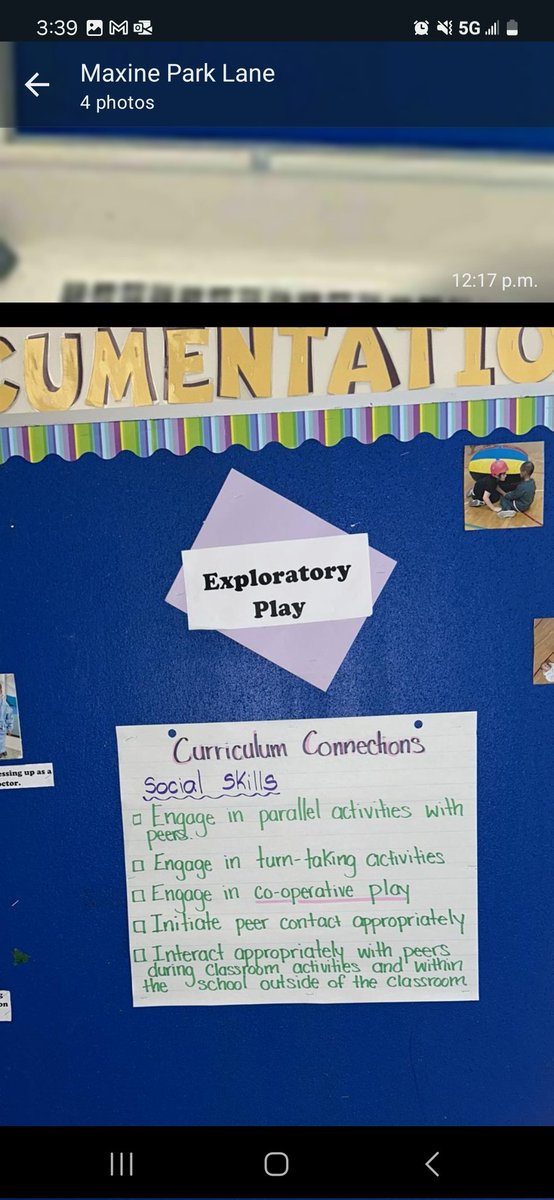 3:39
5G
Maxine Park Lane
4 photos
12:17 p.m.
CUMENTATIO
Exploratory
Play
Curriculum Connections
Social Skills
□ Engage in parallel activities with
peers.
□ Engage in turn-taking activities
□ Engage in co-operative play
□ Initiate peer contact appropriately
□ Interact appropriately with peers
during classroom activities and within
the school outside of the classroom
essing up as a
octor.
on